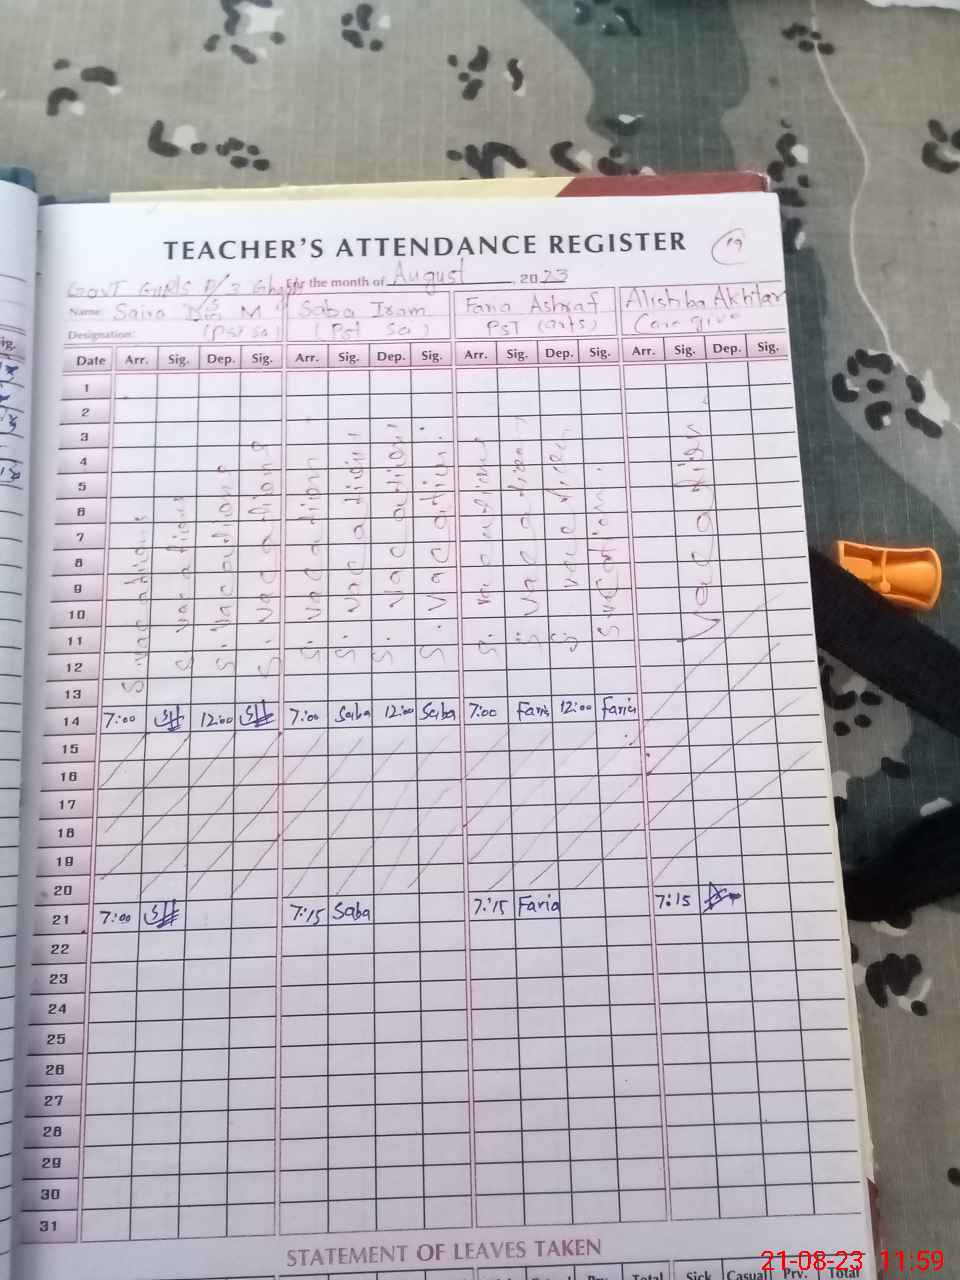 TEACHER'S ATTENDANCE REGISTER 19
GOVT Girls P/S
For the month of August, 2023
Name: Saira M Saba Iram Faria Ashraf Alishba Akhtar
Designation: (PST Sci) (Pst Sci) PST (arts) Care giver
Date Arr. Sig. Dep. Sig. Arr. Sig. Dep. Sig. Arr. Sig. Dep. Sig. Arr. Sig. Dep. Sig.
1
2
3
4
5
6
7
8
9
10
11
12
13
S. vacations S. vacations S. vacations S. vacations S. vacation S. vacation S. vacation S. vacation S. vacation S. vacation S. vacation S. vacation Vacation
14 7:00 12:00 7:00 Saba 12:00 Saba 7:00 Faria 12:00 Faria
15
16
17
18
19
20
21 7:00 7:15 Saba 7:15 Faria 7:15
22
23
24
25
26
27
28
29
30
31
STATEMENT OF LEAVES TAKEN
Total Sick Casual Prv. Total
21-08-23 11:59